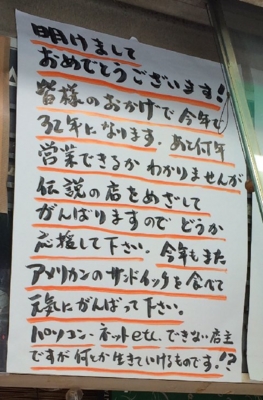 明けまして
おめでとうございます!
皆様のおかげで今年で
32年になります。あと何年
営業できるかわかりませんが
伝説の店をめざして
がんばりますのでどうか
応援して下さい。今年もまた
アメリカンのサンドイッチを食べて
元気にがんばって下さい。
パソコン・ネットetc.できない店主
ですが何とか生きていけるものです。!?